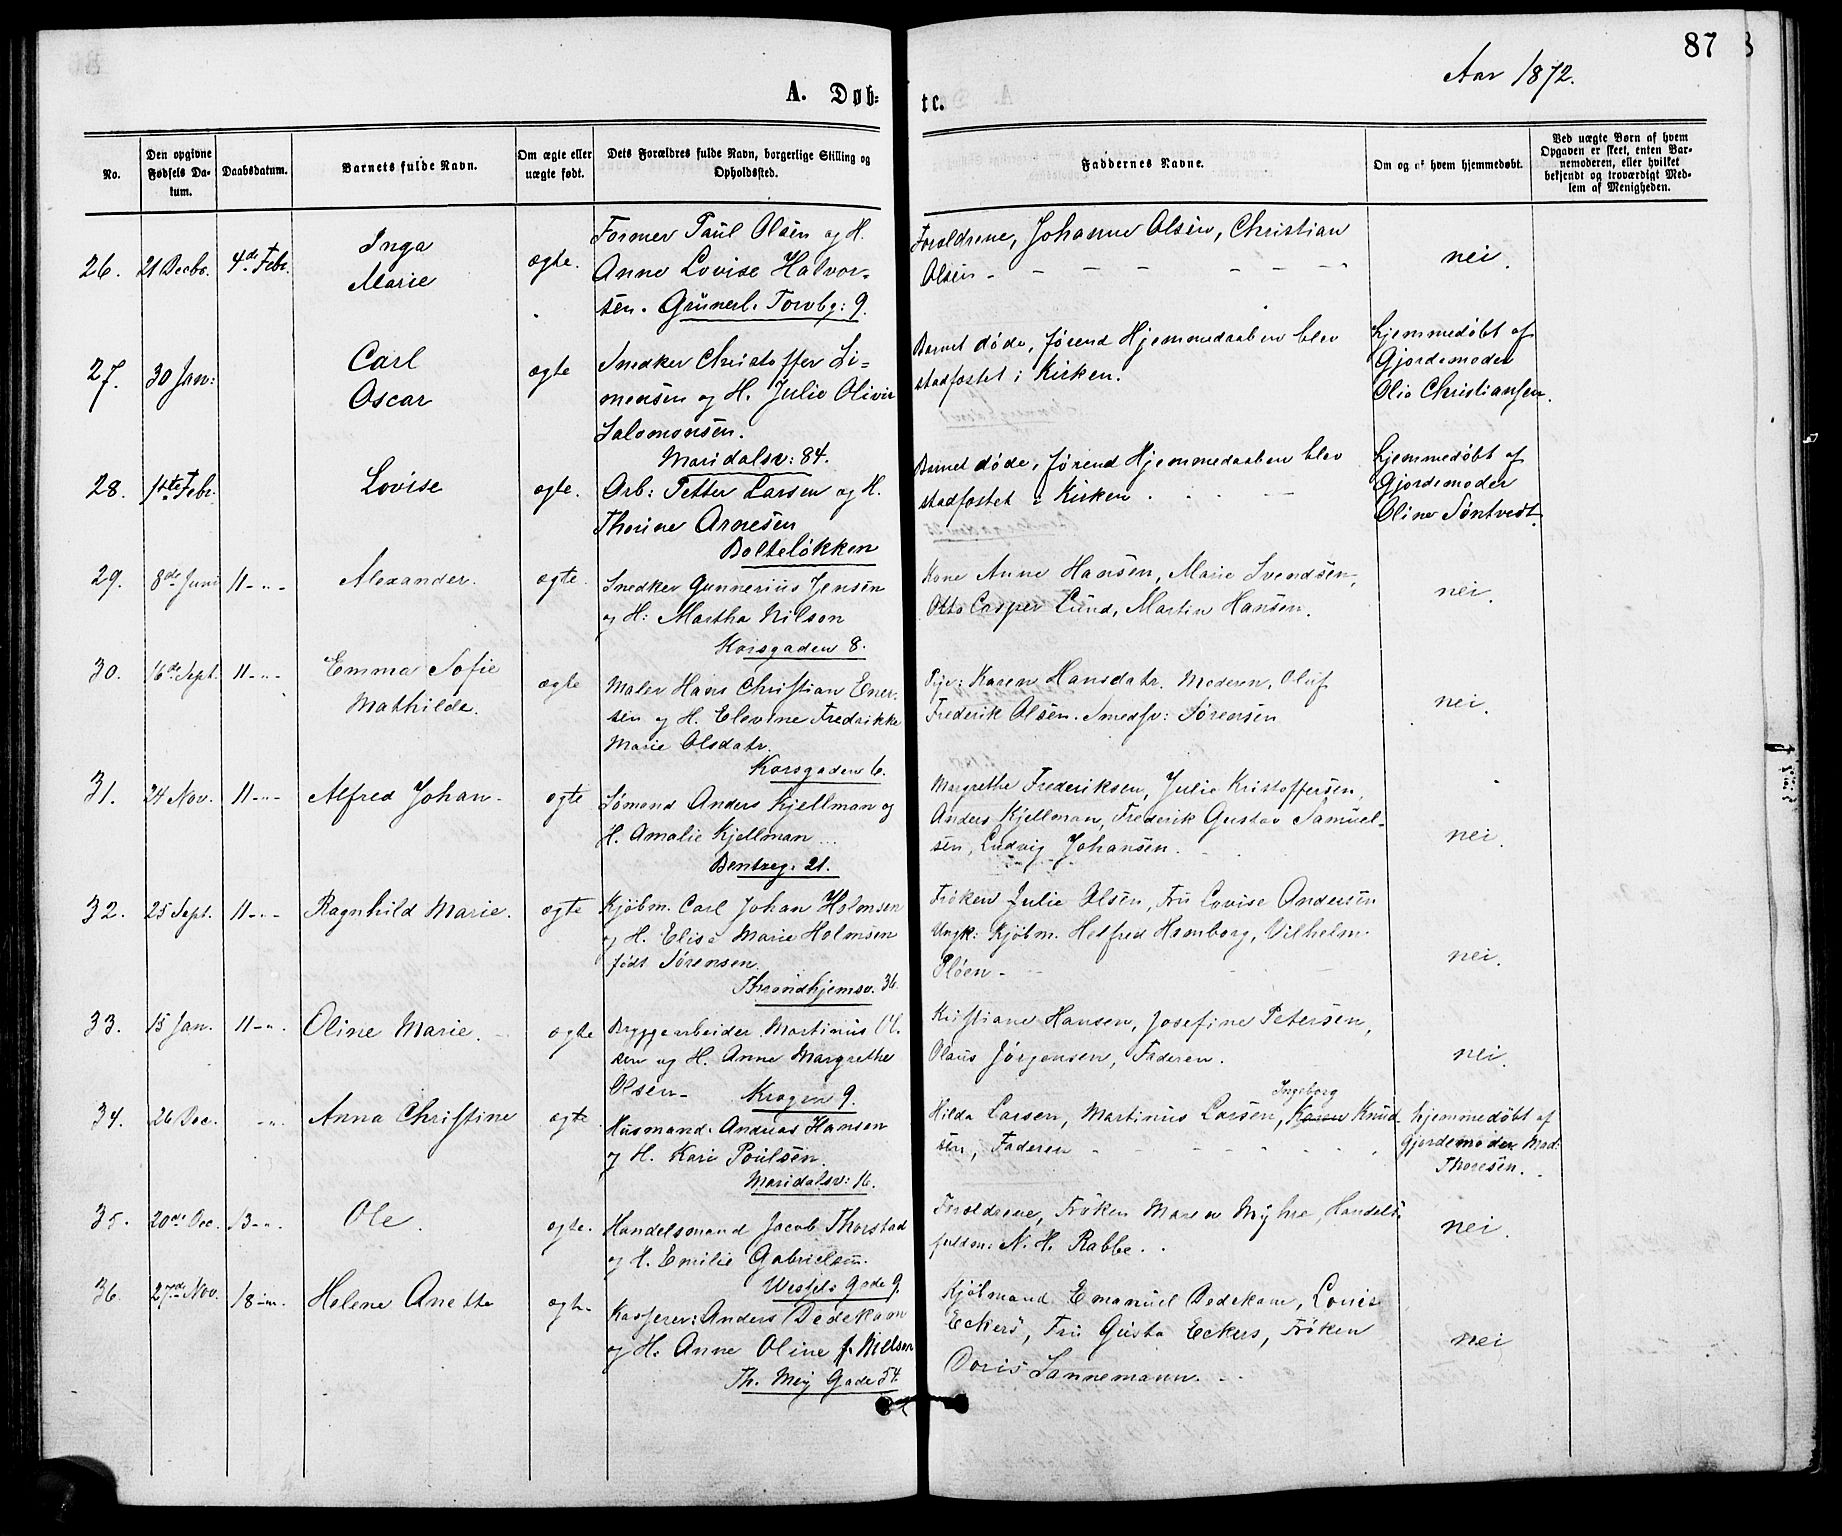 87
Aar 1872.
A. Døb-
te.
No.
Den opgivne Fødsels Da-
tum.
Daabsdatum.
Barnets fulde Navn.
Om ægte eller
uægte født.
Dets Forældres fulde Navn, borgerlige Stilling og
Opholdssted.
Faddernes Navne.
Om og af hvem hjemmedøbt.
Ved uægte Børn af hvem
Opgaven er skeet, enten Bar-
nemoderen, eller hvilket
bekjendt og troværdigt Med-
lem af Menigheden.
26. 21 Decbr. 4de Febr. Inga
Marie
ægte.
Former Paul Olsen og H.
Anne Lovise Halvor-
sen. Grünerl. Torvbg: 9.
Forældrene, Johanne Olsen, Christian
Olsen -
nei.
27. 30 Jan:
Carl
Oscar
ægte
Snedker Christoffer Si-
mensen og H. Julie Olivie
Salomonsen.
Maridalsv: 84.
Barnet døde, førend Hjemmedaaben blev
stadfæstet i Kirken.
hjemmedøbt af
Gjordemoder
Olia Christiansen.
28. 1ste Febr.
Lovise
ægte.
Arb: Petter Larsen og H.
Thorine Arnesen
Bolteløkken
Barnet døde, førend Hjemmedaaben blev
stadfæstet i Kirken.
hjemmedøbt af
Gjordemoder
Oline Tøntvedt.
29. 8de Juni 11-"-
Alexander.
ægte.
Snedker Gunnerius Jensen
og H: Martha Nilson
Korsgaden 8.
Kone Anne Hansen, Marie Svendsen,
Otto Casper Lund, Martin Hansen.
nei.
30. 16de Sept. 11-"-
Emma Sofie
Mathilde.
ægte
Maler Hans Christian Ener-
sen og H. Elevine Fredrikke
Marie Olsdatr.
Korsgaden 6.
Pige: Karen Hansdatr. Moderen, Oluf
Frederik Olsen. Smedsv: Sørensen
nei.
31. 24 Nov. 11-"-
Alfred Johan-
ægte
Sømand Anders Kjellman og
H. Amalie Kjellman
Bentseg. 21.
Margrethe Frederiksen, Julie Kristoffersen,
Anders Kjellman, Frederik Gustav Samuel-
sen, Ludvig Johansen.
nei.
32. 25 Sept. 11-"-
Ragnhild Marie.
ægte
Kjøbm. Carl Johan Holmsen
og H. Elise Marie Holmsen
født Sørensen.
Throndhjemsv. 36.
Frøken Julie Olsen, Fru Lovise Andersen
Ungk: Kjøbm. Helfred Homborg, Vilhelm
Pløen -
nei.
33. 15 Jan. 11-"-
Oline Marie.
ægte
Bryggearbeider Martinus Ol-
sen og H. Anne Margrethe
Olsen- Krogen 9.
Kristiane Hansen, Josefine Petersen,
Olaus Jørgensen, Faderen.
nei.
34. 26 Dec. -"-
Anna Christine
ægte
Husmand Andreas Hansen
og H. Kari Poulsen.
Maridalsv: 16.
Ingeborg
Hilda Larsen, Martinus Larsen, Karen Knud-
sen, Faderen
hjemmedøbt af
Gjordemoder Mad:
Thoresen.
35. 20de Dec. 13-"-
Ole.
ægte.
Handelsmand Jacob Thorstad
og H. Emilie Gabrielsen.
Westels Gade 9.
Forældrene, Frøken Maren Myhre, Handels-
fuldm: N. H. Rabbe.
nei.
36. 27de Nov. 18-"-
Helene Anette
ægte
Kasserer: Anders Dedekam
og H. Anne Oline f. Nielsen
Th. Meÿ Gade 54.
Kjøbmand Emanuel Dedekam, Louis
Eckers, Fru Gusta Eckers, Frøken
Doris Sannemann.
nei